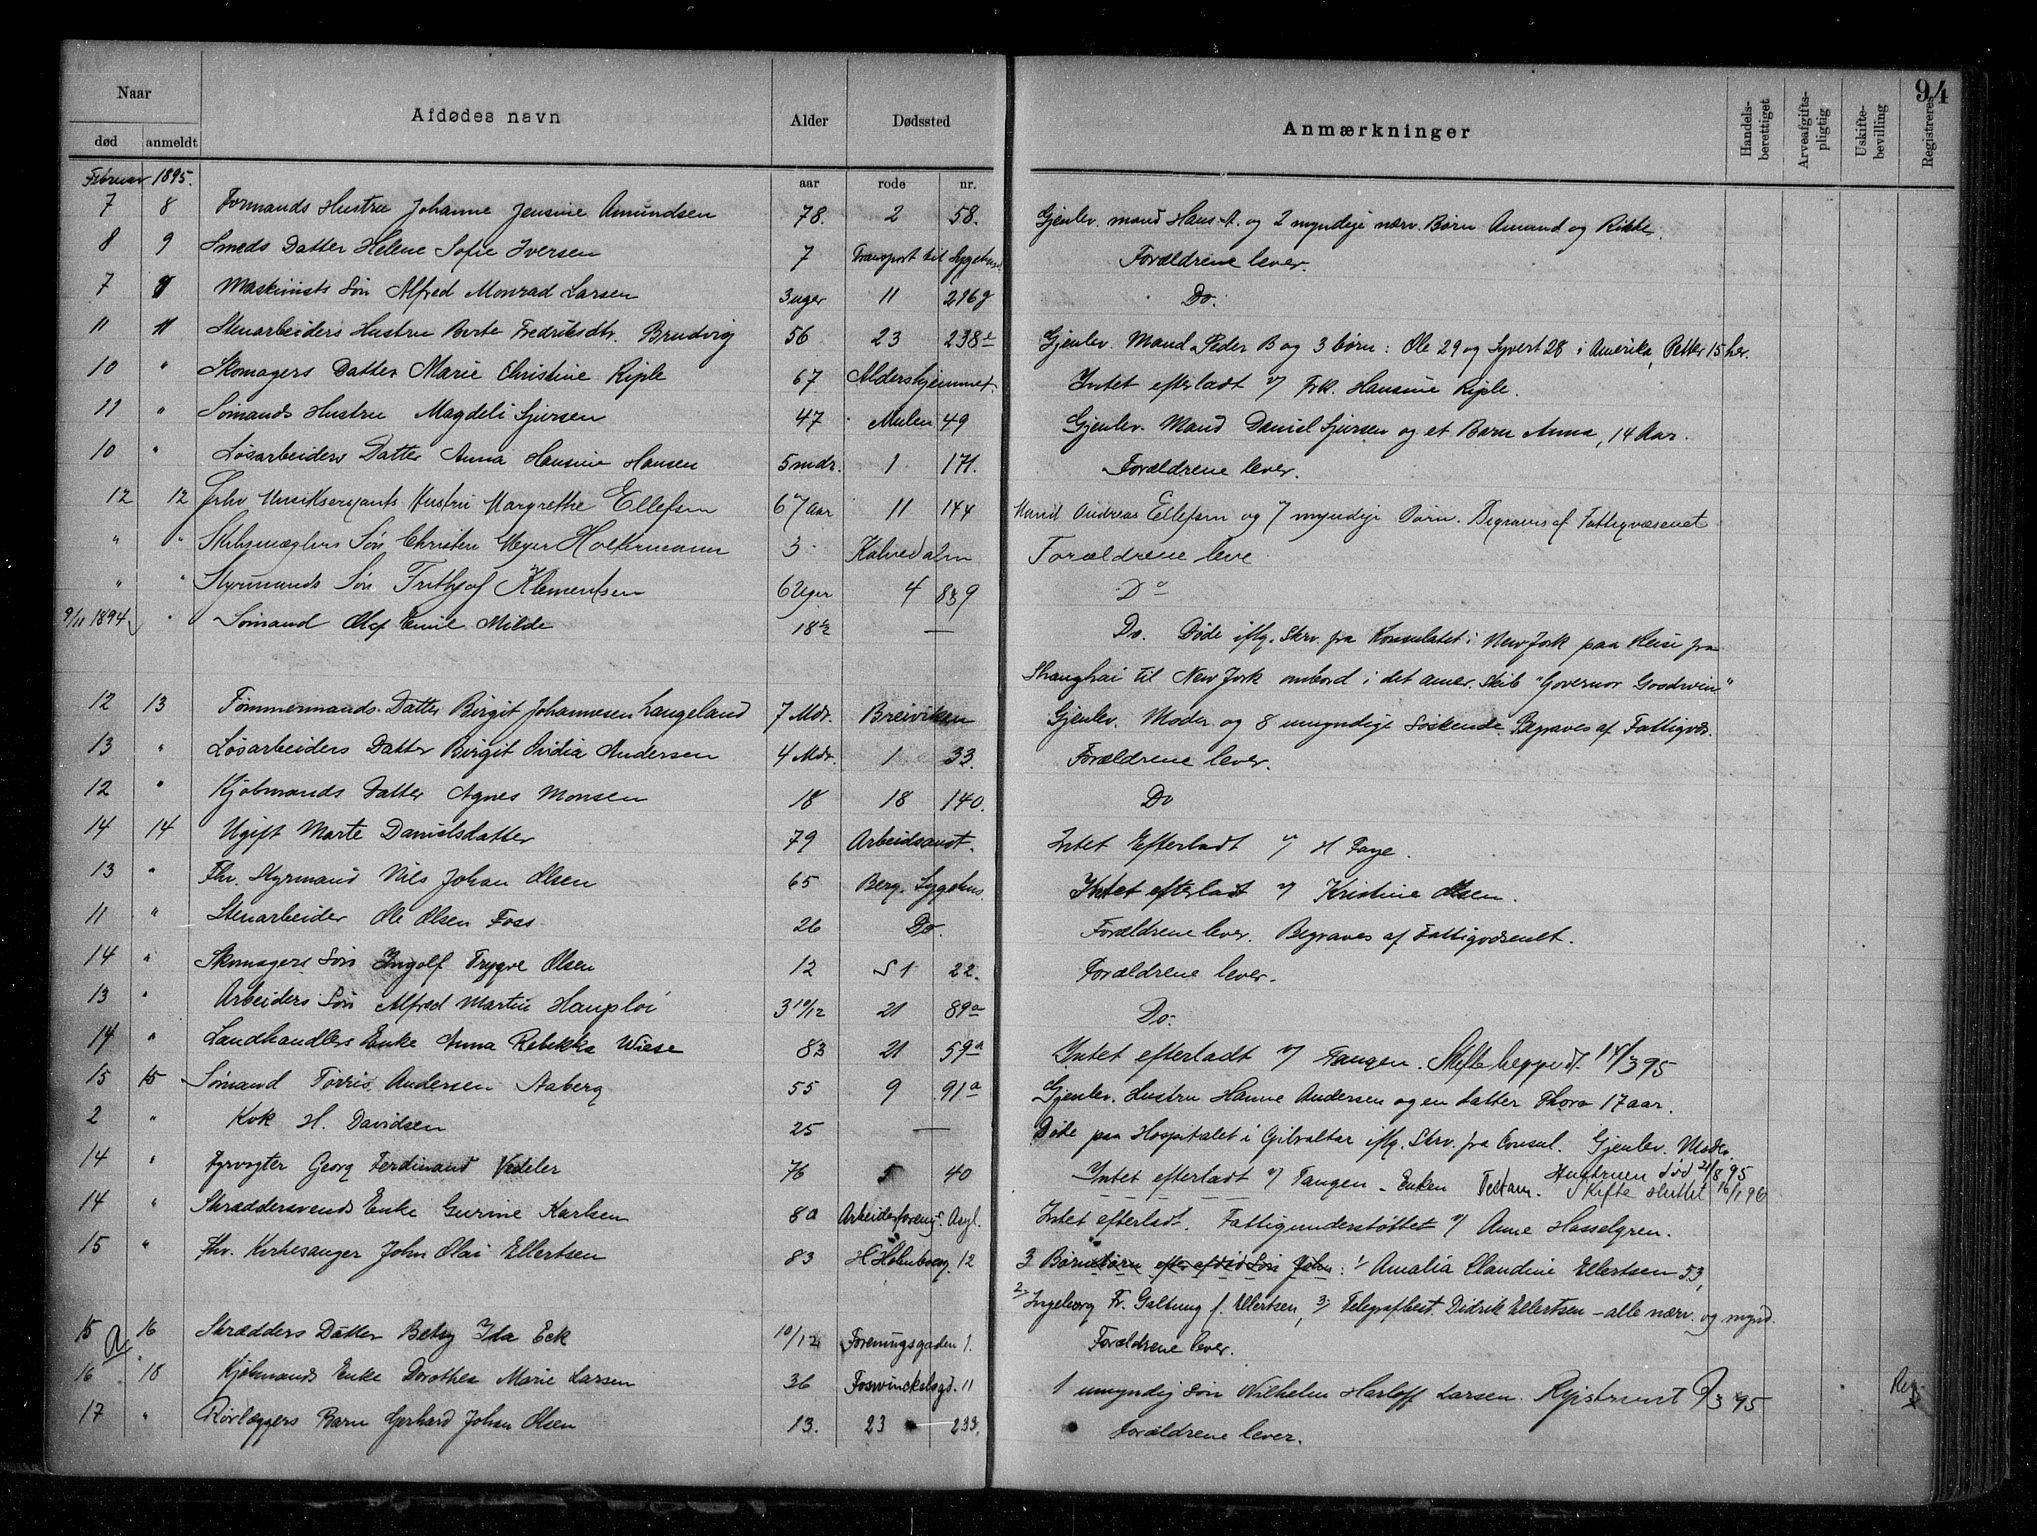 94
Naar
Afdødes navn Alder Dødssted Anmærkninger Handels-berettiget Arveafgifts-pligtig Uskifte-bevilling Registreres
død anmeldt
Februar 1895. aar rode nr.
7 8 Formands Hustru Johanne Jensine Amundsen 78. 2 58. Gjenlev. mand Hans A. og 2 myndige nærv. Børn Amund og Rikke.
8 9 Smeds Datter Helene Sofie Iversen 7 Transport til Sygehuset Forældrene lever.
7 9 Maskinists Søn Alfred Monrad Larsen 3 uger 11 216 g Do.
11 11 Stenarbeiders Hustru Berte Fredriksdtr. Brudvig 56 23 238 Gjenlev. Mand Peder B og 3 børn: Ole 29 og Syvert 28 i Amerika, Petter 15 her.
10 " Skomagers Datter Marie Christine Riple 67 Aldershjemmet. Intet efterladt v/ Frk. Hansine Riple.
11 " Sømands Hustru Magdeli Sjursen 47 Mulen 49 Gjenlev. Mand Daniel Sjursen og et Barn Anna, 14 Aar.
10 " Løsarbeiders Datter Anna Hansine Hansen 5 mdr. 1 171. Forældrene lever.
12 12 Fhv Musiksersjants Hustru Margrethe Ellefsen 67 aar 11 144 Mand Andreas Ellefsen og 7 myndige Børn. Begraves af Fattigvæsenet
" " Skibsmæglers Søn Christen Meyer Holtermann 3 Kalvedalen Forældrene leve
" " Styrmands Søn Frithjof Klementsen 6 Uger 4 859 Do
9/11 1894 " Sømand Olaf Emil Milde 18 1/2 — Do. Døde iflg. Skr. fra Konsulatet i New Jork paa Reise fra
Shanghai til New Jork ombord i det amer. Skib "Governor Goodwin"
12 13 Tømmermands Datter Birgit Johannesen Langeland 7 Mdr. Breiviken Gjenlev. Moder og 8 umyndige Søskende. Begraves af Fattigvæs.
13 " Løsarbeiders Datter Birgit Ovidia Andersen 4 Mdr. 1 33. Forældrene lever.
12 " Kjøbmands Datter Agnes Monsen 18 18 140. Do
14 14 Ugift Marte Danielsdatter 79 Arbeidsanst. Intet Efterladt v/ H Faye.
13 " Fhv. Styrmand Nils Johan Olsen 65 Berg. Sygehus. Intet efterladt v/ Kristine Olsen.
11 " Stenarbeider Ole Olsen Foss 26 Do. Forældrene lever. Begraves af Fattigvæsenet.
14 " Skomagers Søn Ingolf Trygve Olsen 12 S 1 22. Forældrene lever.
13 " Arbeiders Søn Alfred Martin Haugsløi 3 10/12 21 89a Do.
14 " Landhandlers Enke Anna Rebekka Wiese 83 21 59a Intet efterladt v/ Tangen. Skifte begyndt 14/3 95
15 15 Sømand Torris Andersen Aaberg 55 9 91a Gjenlev. Hustru Hanne Andersen og en datter Thora 17 aar.
2 " Kok H. Davidsen 25 — Døde paa Hospitalet i Gibraltar iflg. Skr. fra Consul. Gjenlev. Moder.
14 " Fyrvogter Georg Ferdinand Vedeler 76 5 40 Intet efterladt v/ Tangen – Enken Testam. Hustruen død 21/8 95 Skifte sluttet 16/1 96
14 " Skræddersvends Enke Gurine Karlsen 80 Arbeiderforengs. Asyl. Intet efterladt. Fattigunderstøttet v/ Anne Hasselgren.
15 " Fhv. Kirkesanger John Olai Ellertsen 83 H Holmboeg. 12 3 Børn børn efter afdød Søn John: 1/ Amalia Claudine Ellertsen 53,
2/ Ingeborg Fr. Galtung f. Ellertsen, 3/ Telegrafbest. Didrik Ellertsen – alle nærv. og mynd.
15 16 Skrædders Datter Betsy Ida Eck 10/12 Foreningsgaden 1. Forældrene lever.
16 18 Kjøbmands Enke Dorothea Marie Larsen 36 Fosvinckelsgd. 11 1 umyndig Søn Wilhelm Harloff Larsen. Registreret 9/3 95 Reg.
17 " Rørlæggers Barn Gerhard Johan Olsen 13. 23 233. Forældrene lever.